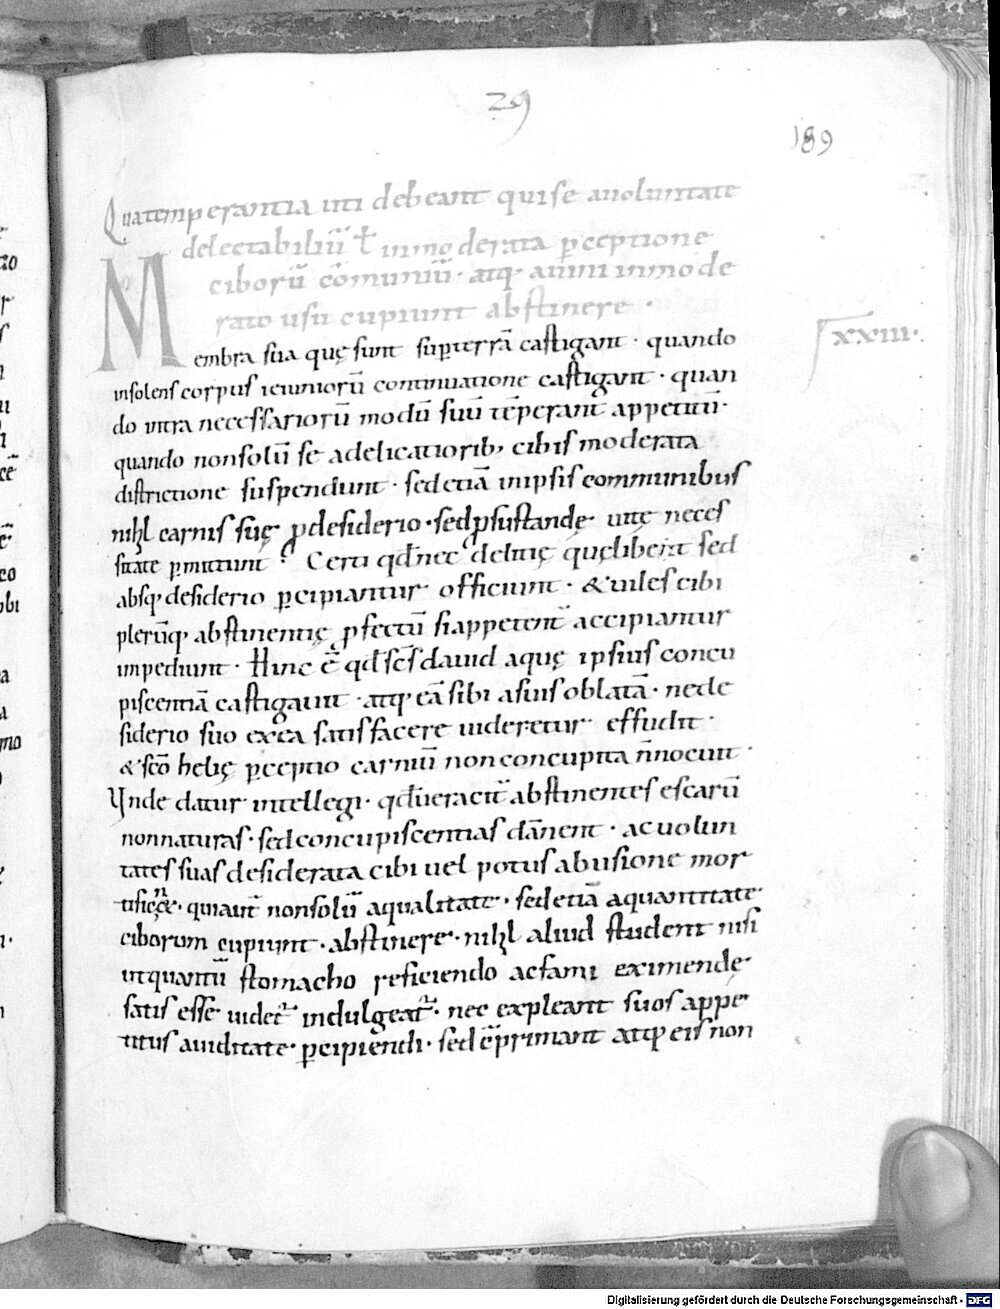 29
189
Qua temperantia uti debeant qui se a uoluntate
delectabiliū ł inmoderata pceptione
ciborū cōmuniū · atq; animi inmode
rato usu cupiunt abstinere ·
xxiii ·
Membra sua quę sunt sup terrā castigant · quando
insolens corpus ieiuniorū continuatione castigant · quan
do intra necessariorū modū suū tēperant appetitū ·
quando non solū se a delicatiorib; cibis moderata
districtione suspendunt · sed etiā in ipsis communibus
nihl carnis suę p desiderio · sed p sustandę uitę neces
sitate pmittunt · Certi qđ nec delitię quęlibent sed
absq; desiderio pcipiantur officiunt · & uiles cibi
plerūq; abstinentię pfectū si appetent̄ accipiantur
impediunt · Hinc ē qđ scs̄ dauid aquę ipsius concu
piscentiā castigauit · atq; eā sibi a suis oblatā · ne de
siderio suo ex ea satisfacere uideretur effudit ·
& scō helię pceptio carniū non concupita n̄ nocuit ·
Ynde datur intellegi · qđ ueracit̄ abstinentes escarū
non naturas · sed concupiscentias dānent · ac uolun
tates suas desiderata cibi uel potus abusione mor
tificent · qui aut̄ non solū a qualitate · sed etiā a quantitate
ciborum cupiunt · abstinere · nihl aliud student nisi
ut quantū stomacho reficiendo ac fami eximendę
satis esse uidet̄ indulgeat̄ · nec expleant suos appe
titus auiditate · pcipiendi · sed cōprimant atq; eis non
Digitalisierung gefördert durch die Deutsche Forschungsgemeinschaft - DFG